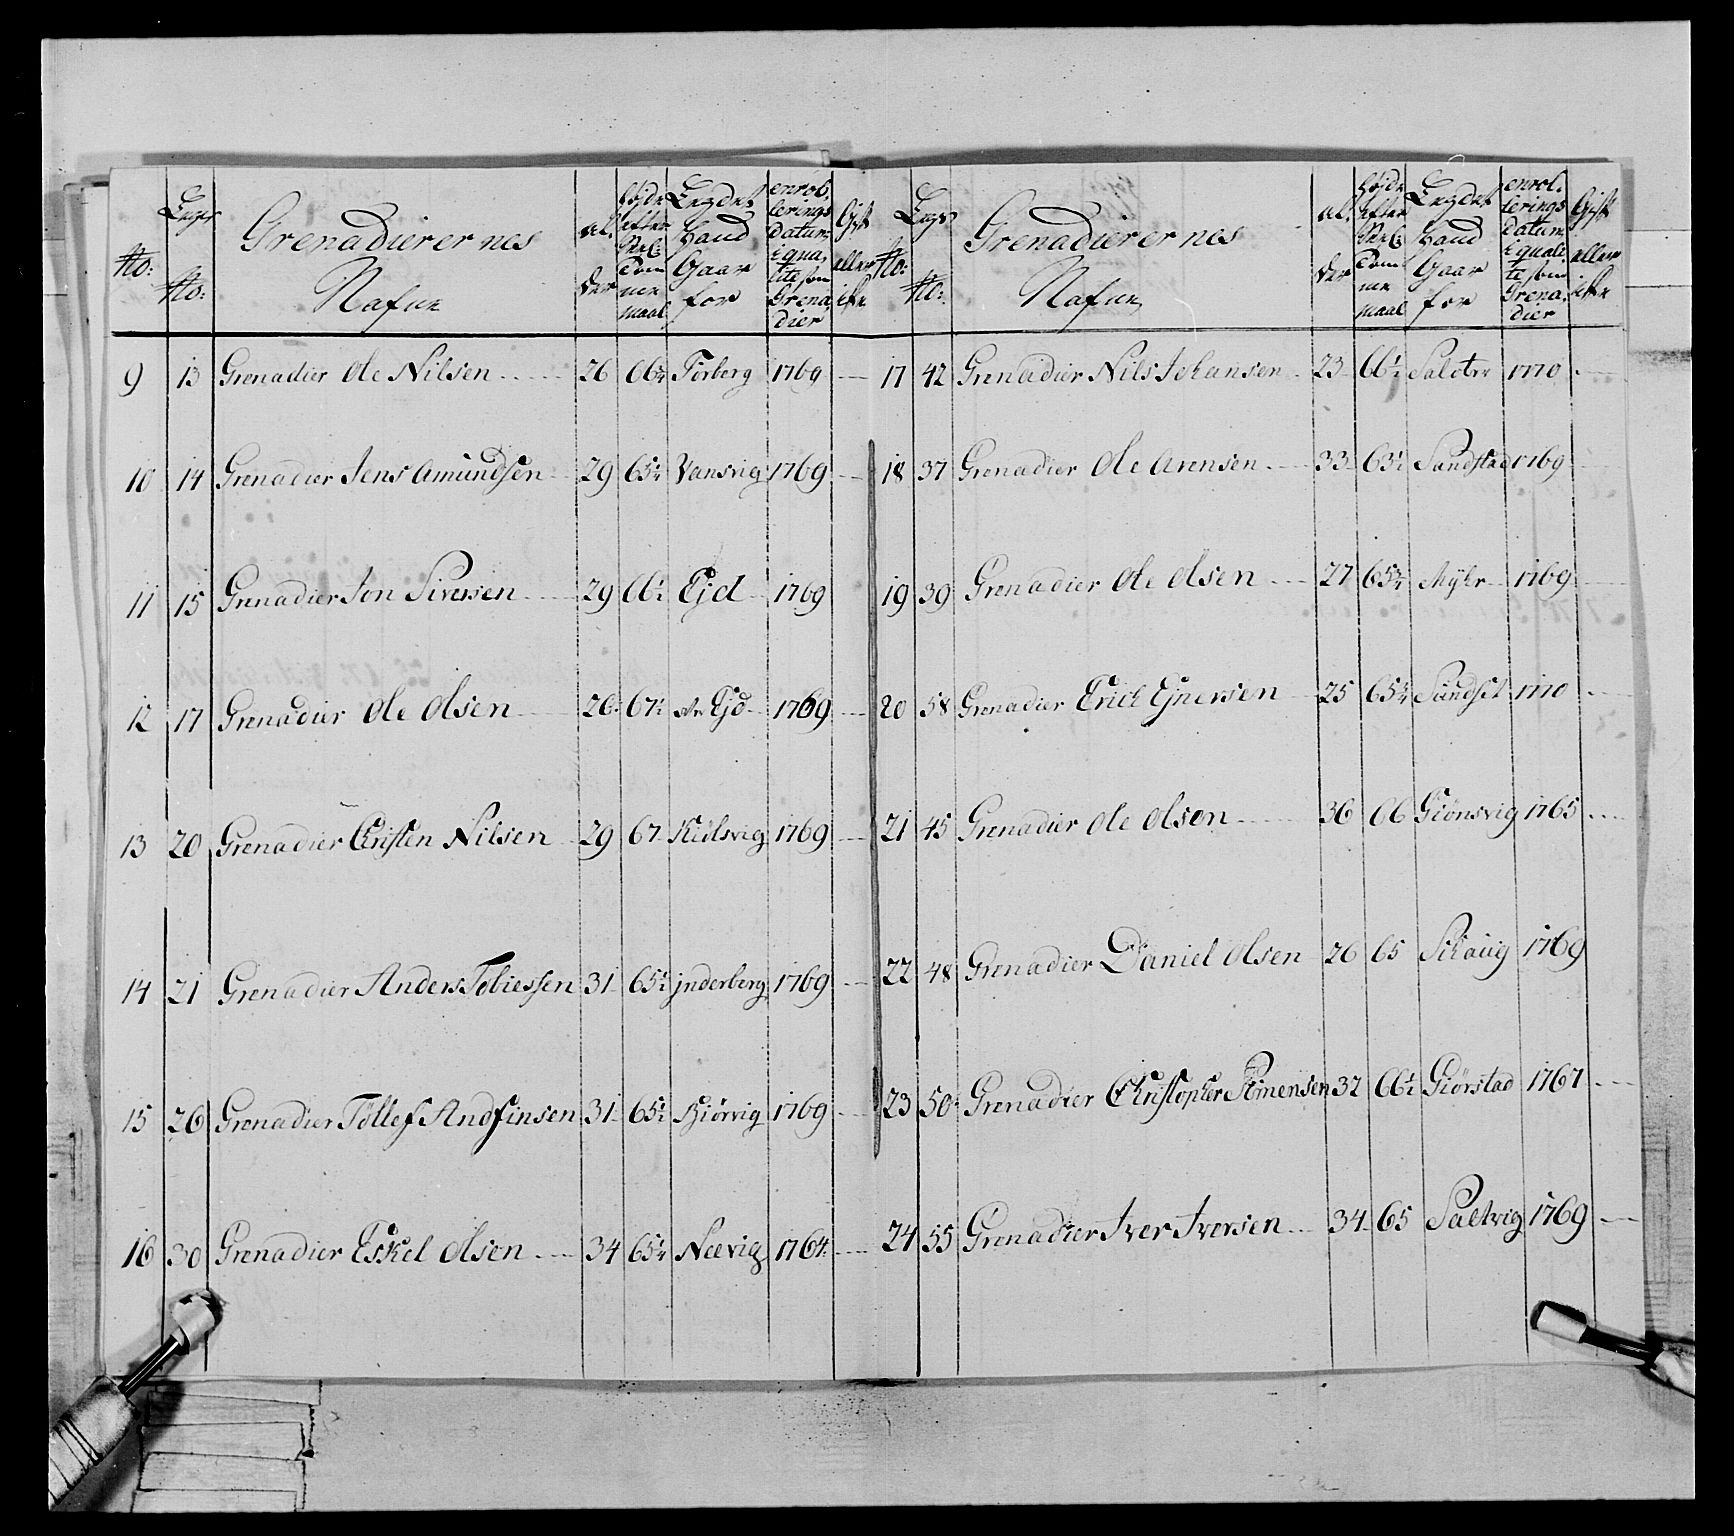 No: Lægs No: Grenadierernes Nafne al: der højde efter Tomme maal Legdet hand Gaar for enrol, lerings datum Equa, lite som Grena, dier Gift eller icke
9 13 Grenadier Ole Nilsen 26 66¾ Torberg 1769
10 14 Grenadier Jens Amundsen 29 65¼ Vansvig 1769
11 15 Grenadier Jon Siversen 29 66½ Ejd 1769
12 17 Grenadier Ole Olsen 26 67½ Ejd 1769
13 20 Grenadier Christen Nilsen 29 67 Kulsvig 1769
14 21 Grenadier Anders Tobiessen 31 65½ jnderberg 1769
15 26 Grenadier Tollef Andfinsen 31 65½ Kiörvig 1769
16 30 Grenadier Eskel Olsen 34 65¼ Neevig 1764
No: Lægs No: Grenadierernes Nafne al: der højde efter Tomme maal Legdet hand Gaar for enrol. lerings datum Equali te som Grena, dier Gift eller icke
17 42 Grenadier Nils Johansen 23 66½ 1770
18 37 Grenadier Ole Arensen 33 63½ Sandstad 1769
19 39 Grenadier Ole Olsen 27 65¾ Myhr 1769
20 58 Grenadier Erich Ejnersen 25 65¼ Sundset 1770
21 45 Grenadier Ole Olsen 36 66 Giönsvig 1765
22 48 Grenadier Daniel Olsen 26 65 Schaug 1769
23 50 Grenadier Christopher Simensen 32 66½ Giörstad 1767
24 55 Grenadier Iver Iversen 34 65 Saltvig 1769